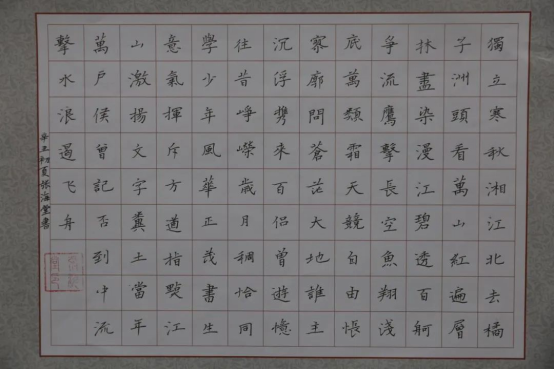 獨立寒秋湘江北去橘
子洲頭看萬山紅遍層
林盡染漫江碧透百舸
爭流鷹擊長空魚翔淺
底萬類霜天競自由悵
寥廓問蒼茫大地誰主
沉浮携來百侶曾遊憶
往昔崢嶸歲月稠恰同
學少年風華正茂書生
意氣揮斥方遒指點江
山激揚文字糞土當年
萬戶侯曾記否到中流
擊水浪遏飞舟
辛丑初夏張海堂書